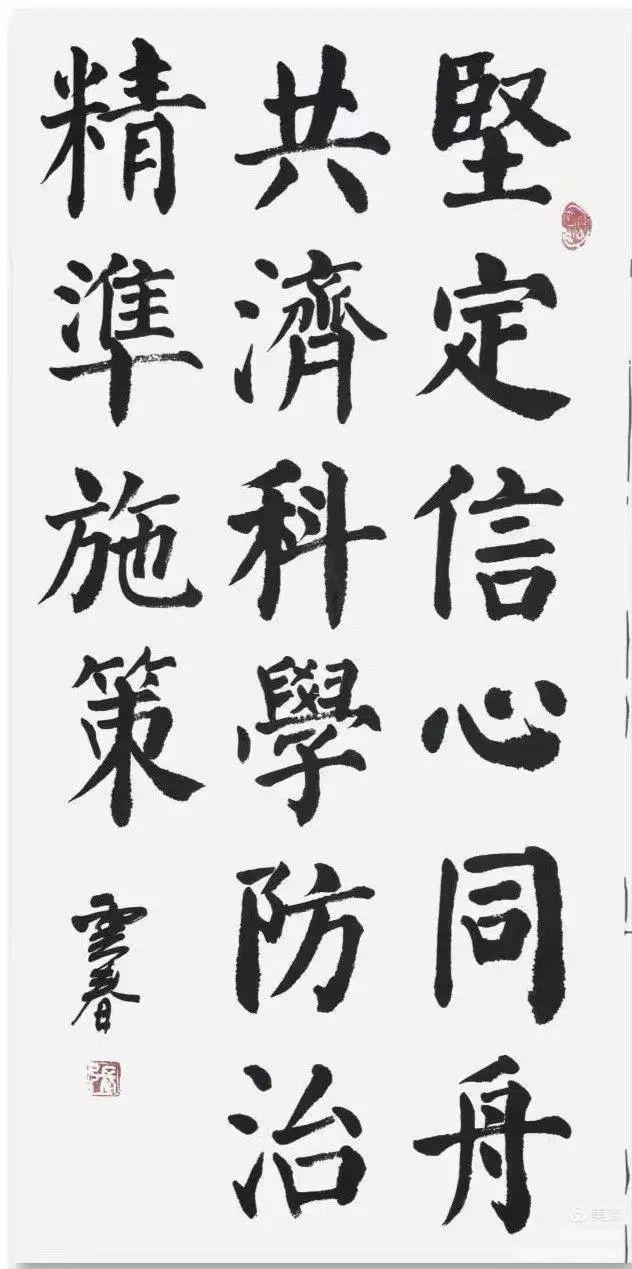 堅定信心同舟
共濟科學防治
精準施策
雲春